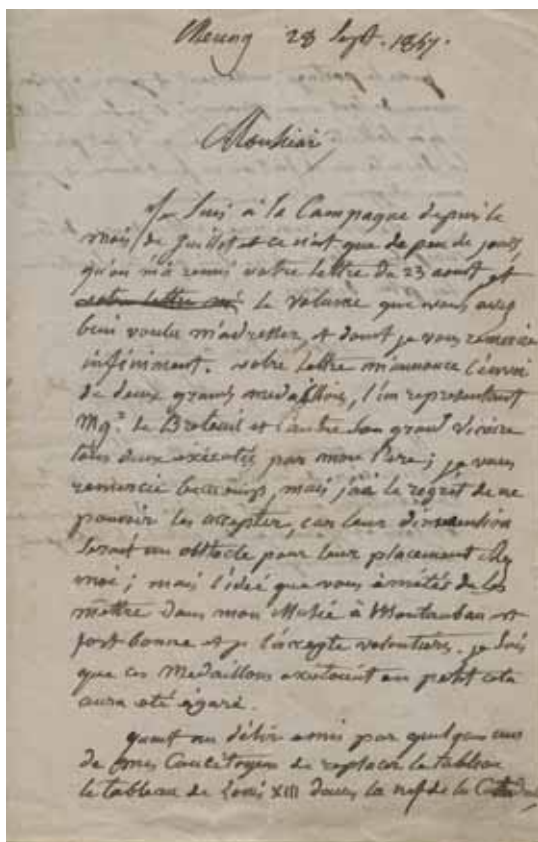 Meung 28 Sept. 1857.
Monsieur,
Je suis à la Campagne depuis le
mois de Juillet et ce n'est que de peu de jours
qu'on m'a remis votre lettre du 23 aout et
votre lettre le volume que vous avez
bien voulu m'adresser, et dont je vous remercie
infiniment. votre lettre m'annonce l'envoi
de deux grands medaillons, l'un representant
Mgr. de Breteuil et l'autre son grand Vicaire
tous deux exécutés par mon Pere; je vous
remercie beaucoup, mais j'ai le regret de ne
pouvoir les accepter, car leur dimension
serait un obstacle pour leur placement chez
moi; mais l'idée que vous émetés de les
mettre dans mon Musée à Montauban est
fort bonne et je l'accepte volontiers. je
que ces Medaillons existoient en petit cela
aura été égaré.
quant au désir emis par quelques uns
de mes Concitoyens de replacer le tableau
le tableau de Louis XIII dans la nef de la